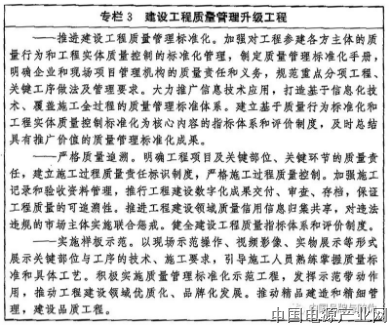 专栏3 建设工程质量管理升级工程
——推进建设工程质量管理标准化。加强对工程参建各方主体的质
量行为和工程实体质量控制的标准化管理，制定质量管理标准化手册，
明确企业和现场项目管理机构的质量责任和义务，规范重点分项工程、
关键工序做法及管理要求。大力推广信息技术应用，打造基于信息化技
术、覆盖施工全过程的质量管理标准体系。建立基于质量行为标准化和
工程实体质量控制标准化为核心内容的指标体系和评价制度，及时总结
具有推广价值的质量管理标准化成果。
——严格质量追溯。明确工程项目及关键部位、关键环节的质量责
任，建立施工过程质量责任标识制度，严格施工过程质量控制。加强施工
记录和验收资料管理，推行工程建设数字化成果交付、审查、存档，保证
工程质量的可追溯性。推进工程建设领域质量信用信息归集共享，对违法
违规的市场主体实施联合惩戒。健全建设工程质量指标体系和评价制度。
——实施样板示范。以现场示范操作、视频影像、实物展示等形式
展示关键部位与工序的技术、施工要求，引导施工人员熟练掌握质量标
准和具体工艺。积极实施质量管理标准化示范工程，发挥示范带动作
用，推动工程建设领域优质化、品牌化发展。推动精品建造和精细管
理，建设品质工程。
中国电源产业网